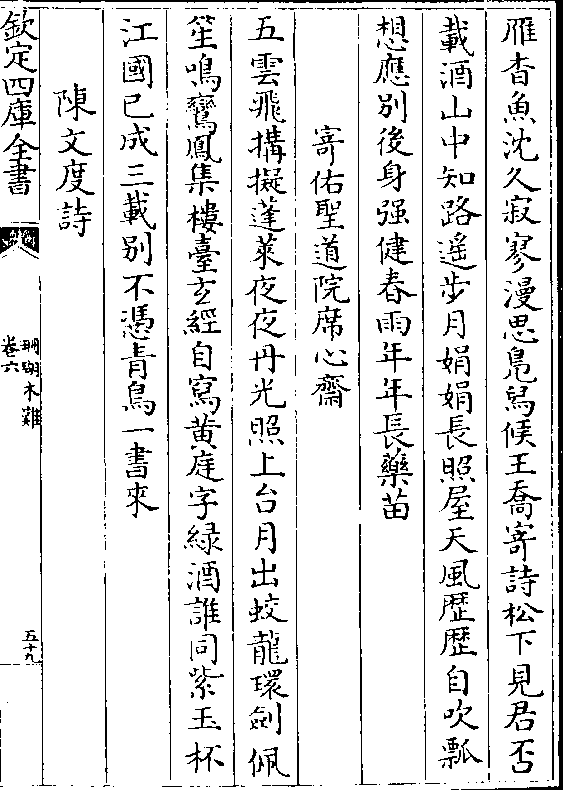 雁杳魚沈久寂寥漫思鳬舄候王喬寄詩松下見君否
載酒山中知路遥步月娟娟長照屋天風歴歴自吹瓢
想應别後身强健春雨年年長藥苗
寄佑聖道院席心齋
五雲飛搆擬蓬萊夜夜丹光照上台月出蛟龍環劍佩
笙鳴鸞鳳集樓臺玄經自寫黄庭字緑酒誰同紫玉杯
江國已成三載别不憑青鳥一書來
陳文度詩
欽定四庫全書
珊瑚木難
卷六
五十九